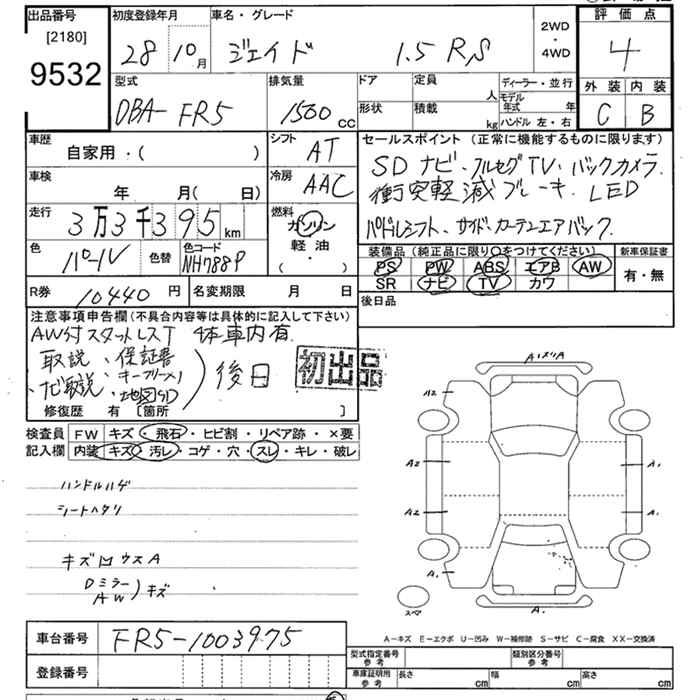 出品番号 初度登録年月 車名・グレード 2WD・4WD 評価点
[2180]
9532 28 10月 ジェイド 1.5 RS 4
型式 排気量 ドア 定員 人 ディーラー・並行 外装 内装
DBA-FR5 1500cc 形状 積載 kg モデル年式 年 ハンドル 左・右 C B
車歴 自家用・( ) シフト AT セールスポイント (正常に機能するものに限ります)
車検 年 月( 日) 冷房 AAC SDナビ・フルセグTV、バックカメラ
衝突軽減ブレーキ. LED
走行 3万3千395km 燃料 ガソリン・軽油・( ) パドルシフト、サイド、カーテンエアバック.
色 パール 色替 色コード NH788P 装備品(純正品に限り○をつけてください) 新車保証書
PS PW ABS エアB AW 有・無
SR ナビ TV カワ
R券 10440円 名変期限 月 日 後日品
注意事項申告欄(不具合内容等は具体的に記入して下さい)
AW付スタットレスT 4本車内有
取説、保証書
ナビ取説、地図SD 後日 初出品
修復歴 有 [箇所 ]
検査員 FW キズ・飛石・ヒビ割・リペア跡・×要
記入欄 内装 キズ・汚レ・コゲ・穴・スレ・キレ・破レ
ハンドルハゲ
シートヘタリ
キズ凹ウスA
Dミラー
AW キズ
A1
A2
A2 A1
A2 A1
A1
スペア A1
A-キズ E-エクボ U-凹み W-補修跡 S-サビ C-腐食 XX-交換済
車台番号 FR5-1003975 型式指定番号 参考 類別区分番号 参考
登録番号 車庫証明用 参考 長さ cm 幅 cm 高さ cm